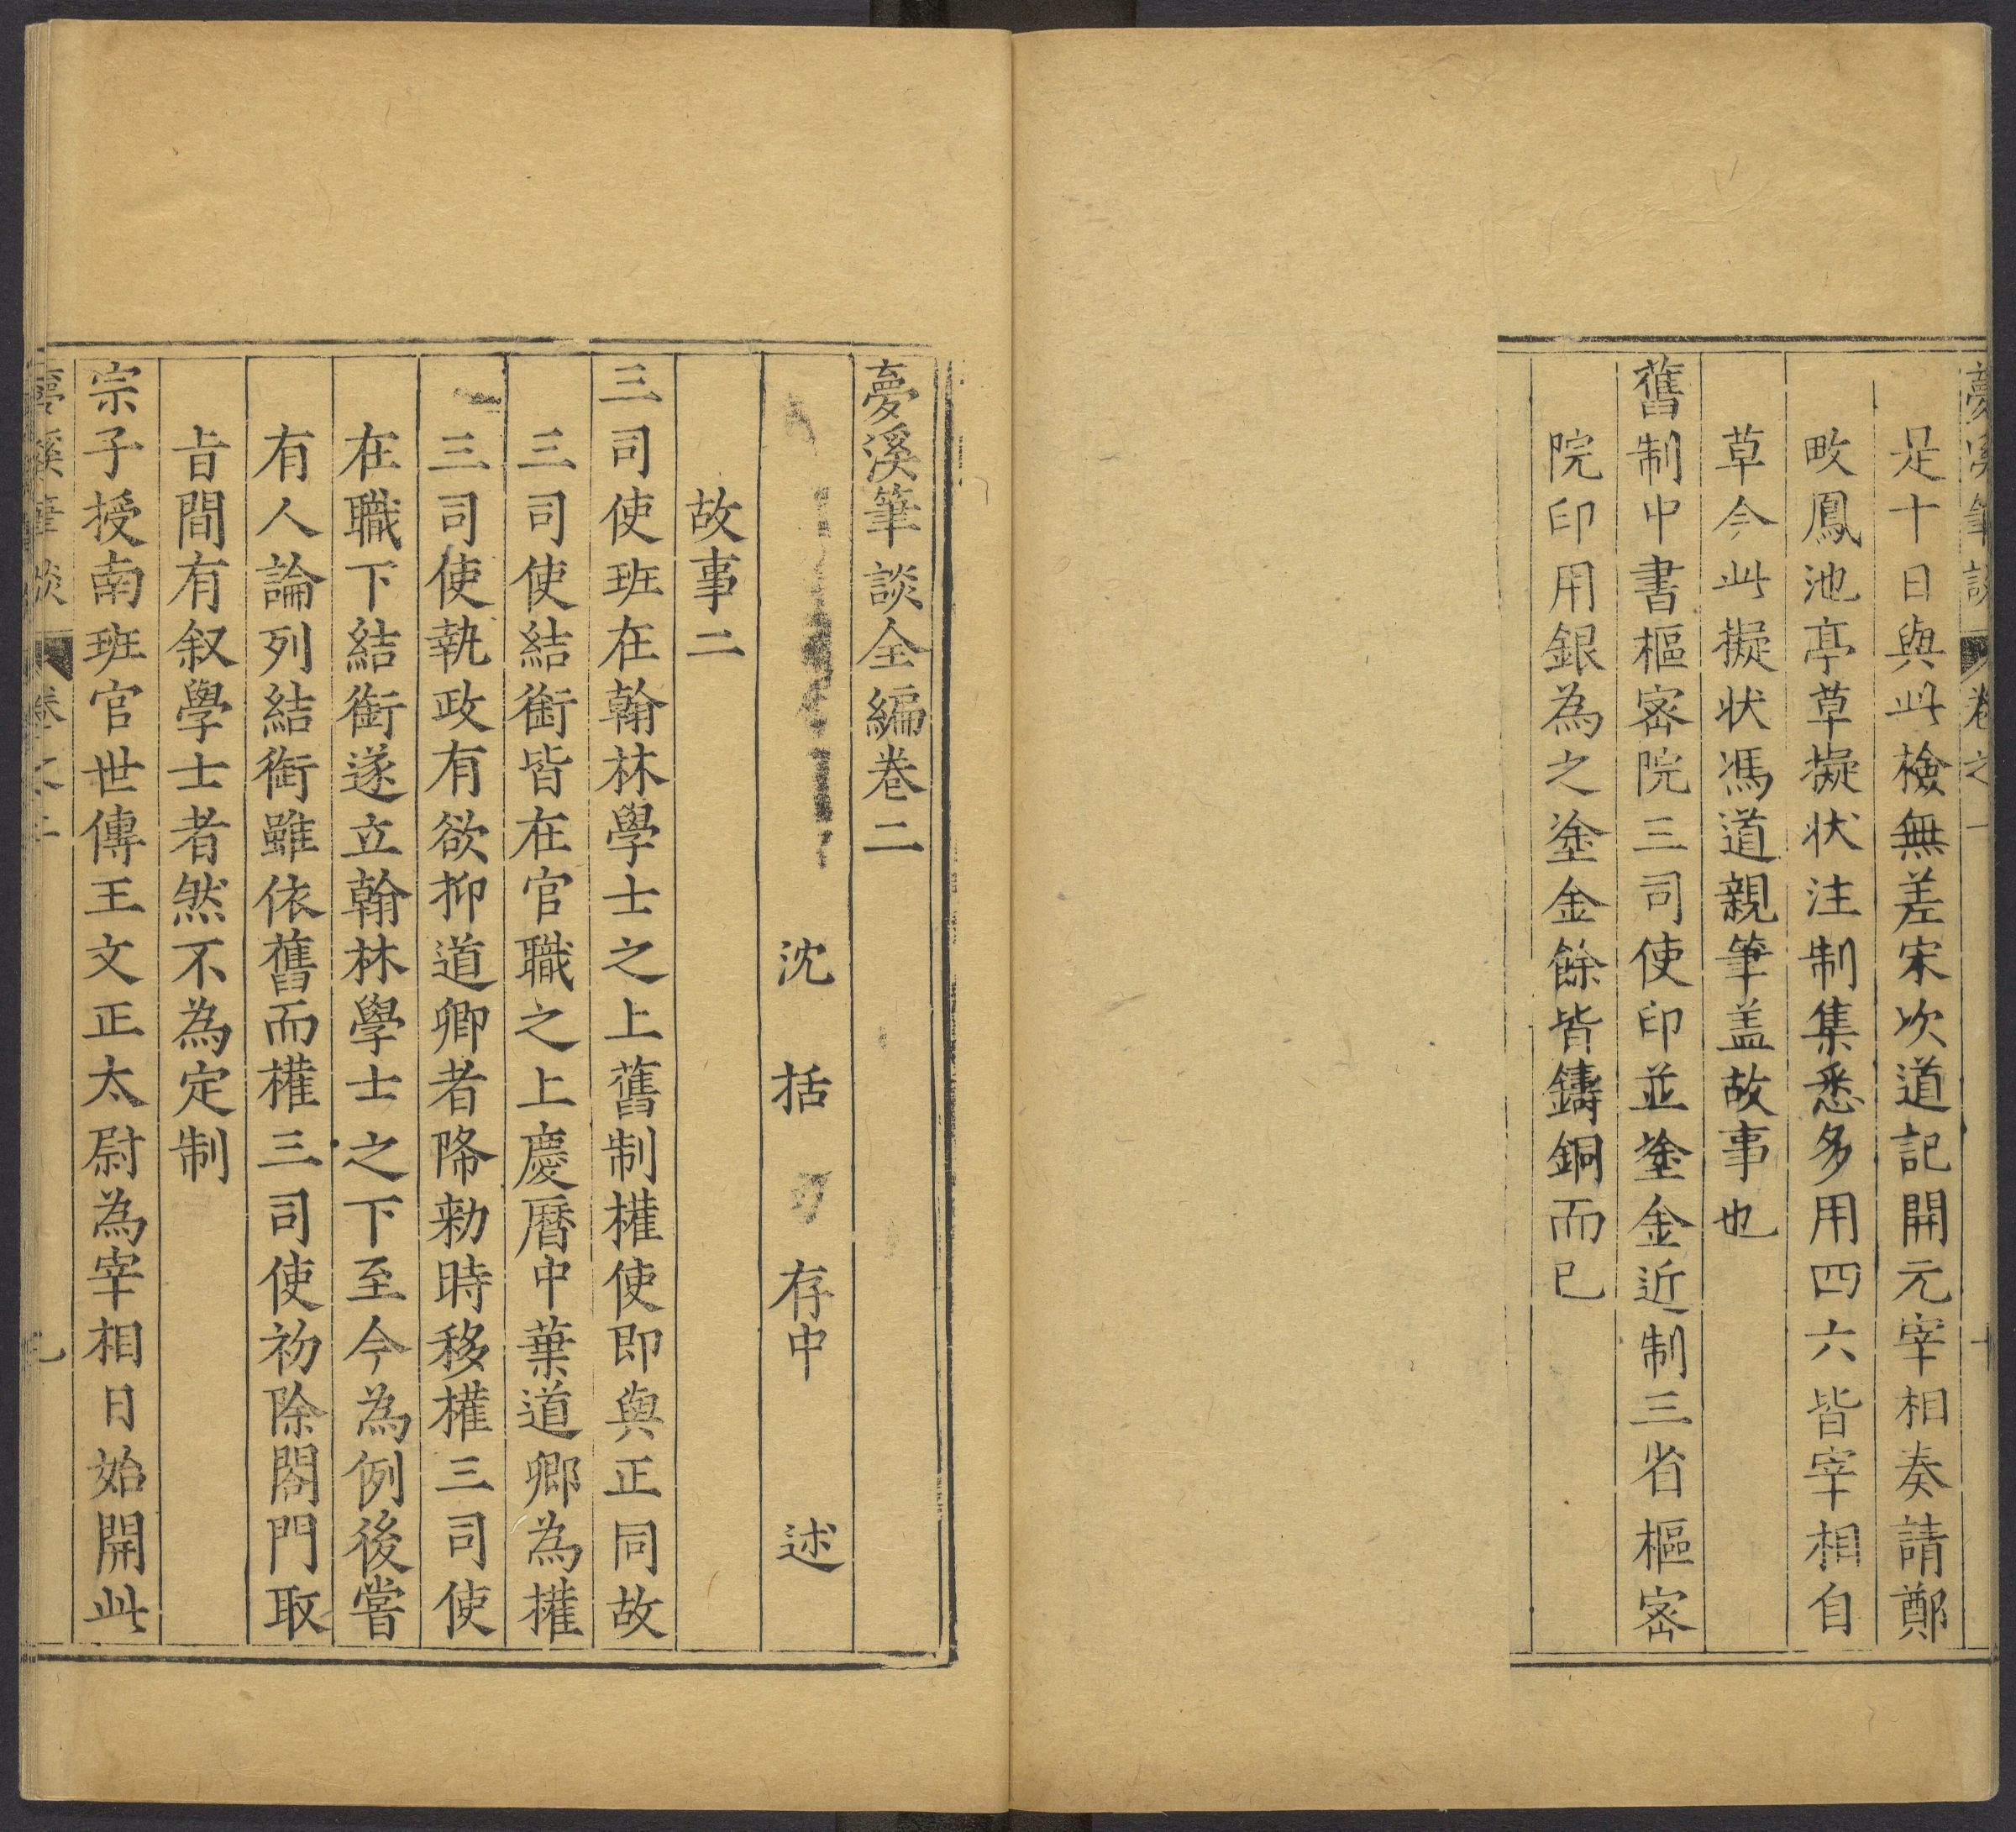 夢溪筆談 卷之一 十
是十日與此檢無差宋次道記開元宰相奏請鄭
畋鳳池亭草擬状注制集悉多用四六皆宰相自
草今此擬状馮道親筆盖故事也
舊制中書樞密院三司使印並塗金近制三省樞密
院印用銀為之塗金餘皆鑄銅而已
夢溪筆談全編卷二
沈括 存中 述
故事二
三司使班在翰林學士之上舊制權使即與正同故
三司使結銜皆在官職之上慶曆中葉道卿為權
三司使執政有欲抑道卿者降勑時移權三司使
在職下結銜遂立翰林學士之下至今為例後嘗
有人論列結銜雖依舊而權三司使初除閤門取
㫖間有叙學士者然不為定制
宗子授南班官世傳王文正太尉為宰相日始開此
夢溪筆談 卷之二